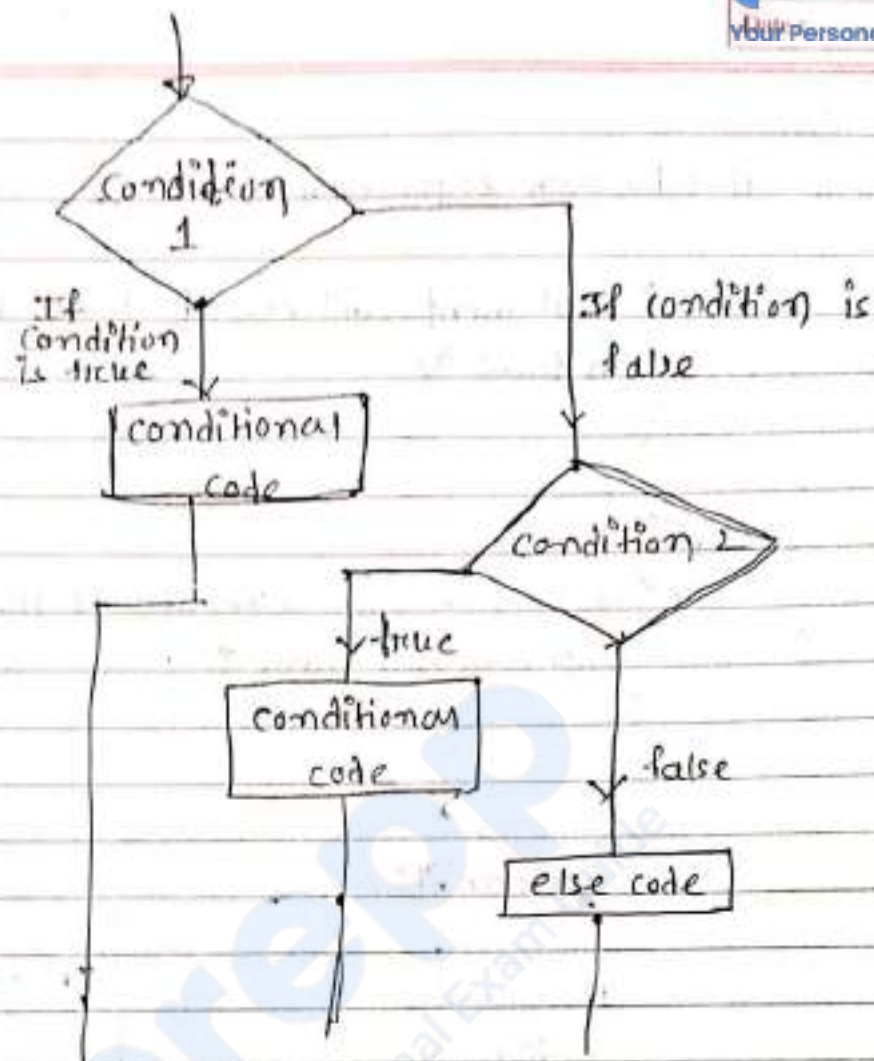 Your Persona
condition
1
If
condition
is true
If condition is
false
conditional
code
condition 2
true
conditional
code
false
else code
prepp
nal Exam Guide